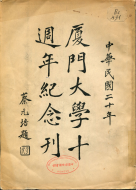 中華民國二十年
廈門大學十
週年紀念刊
蔡元培題